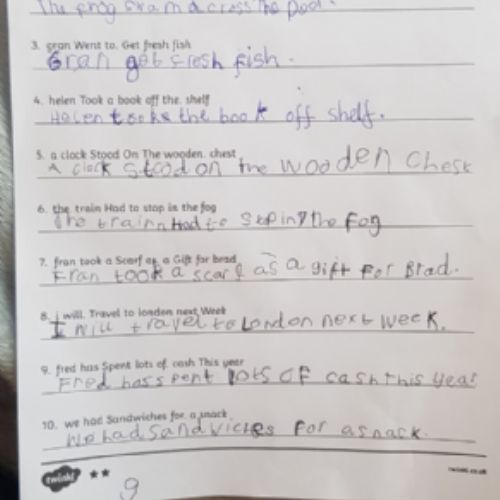 The frog swam across the pool.
3. gran Went to. Get fresh fish
Gran get fresh fish.
4. helen Took a book off the. shelf
Helen tooke the book off shelf.
5. a clock Stood On The wooden. chest
A clock stood on the wooden chest
6. the train Had to stop in the fog
The train Had to stop in the fog
7. fran took a Scarf as a Gift for brad
Fran took a scarf as a gift for Brad.
8. i will. Travel to london next Week
I will travel to London next week.
9. fred has Spent lots of. cash This year
Fred has spent lots of cash this year
10. we had Sandwiches for. a snack
We had sandwiches for a snack.
twinkl
twinkl.co.uk
9